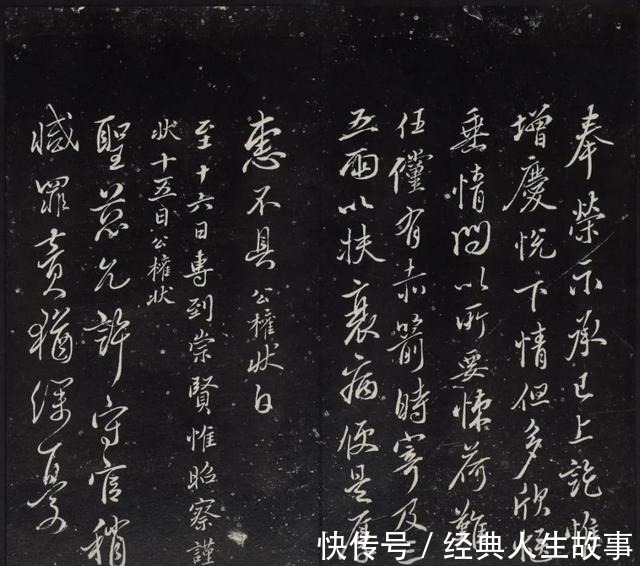 奉榮示承已上訖惟
增慶悅下情但多欣愜
垂情問以所要悚荷難
任儻有赤箭時寄及三
五兩以扶衰病便是厚
惠不具公權狀白
至十六日專到崇賢惟昭察謹
狀十五日公權狀
聖慈允許守官稍
減罪責猶深憂
快传号/经典人生故事